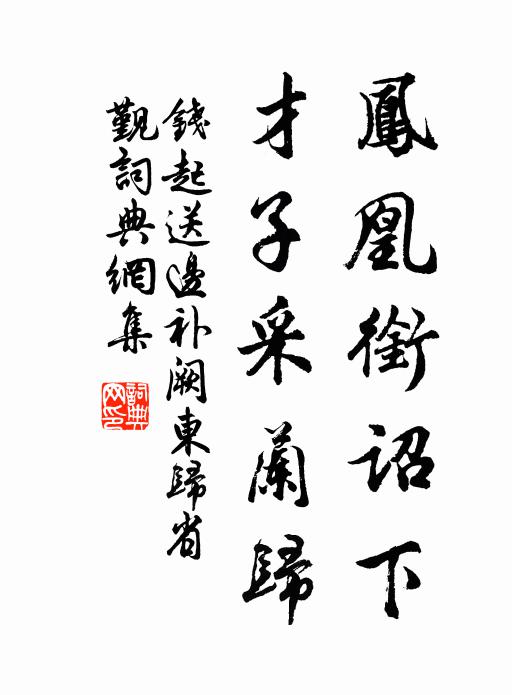 鳳凰銜詔下
才子采蘭歸
錢起送邊补闕東歸省
觀詞典網集
詞典
网印